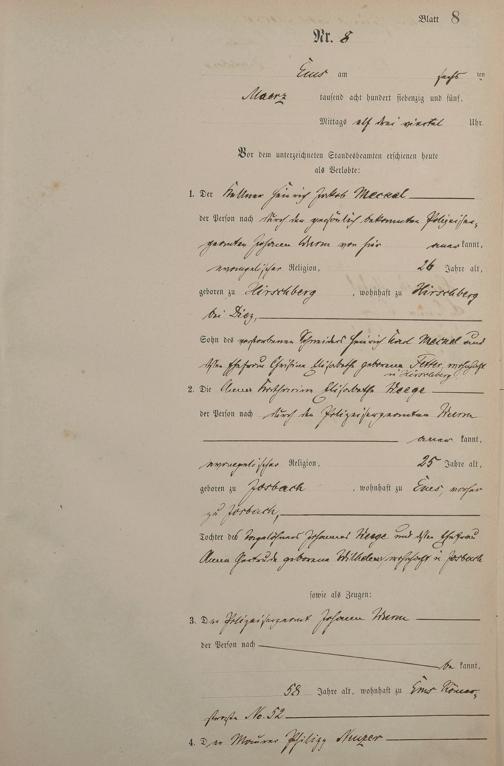 Blatt 8
Nr. 8
Ems am sechs ten
Maerz tausend acht hundert siebenzig und fünf,
Mittags elf drei viertel Uhr.
Vor dem unterzeichneten Standesbeamten erschienen heute
als Verlobte:
1. Der Kellner Heinrich Jakob Meckel
der Person nach durch den persönlich bekannten Polizeiser-
geanten Johann Wurm von hier anerkannt,
evangelischer Religion, 26 Jahre alt,
geboren zu Hirschberg, wohnhaft zu Hirschberg
bei Diez,
Sohn des verstorbenen Schneiders Heinrich Karl Meckel und
dessen Ehefrau Christine Elisabethe geborene wohnhaft
in Hirschberg
2. Die Anna Katharine Elisabethe
der Person nach durch den Polizeisergeanten Wurm
anerkannt,
evangelischer Religion, 25 Jahre alt,
geboren zu Josbach, wohnhaft zu Ems, vorher
zu Josbach,
Tochter des Tagelöhners Johannes und dessen Ehefrau
Anna Gertrude geborene Wilhelm wohnhaft in Josbach
sowie als Zeugen:
3. Der Polizeisergeant Johann Wurm
der Person nach
be kannt,
58 Jahre alt, wohnhaft zu Ems Römer-
straße No. 52
4. Der Maurer Philipp